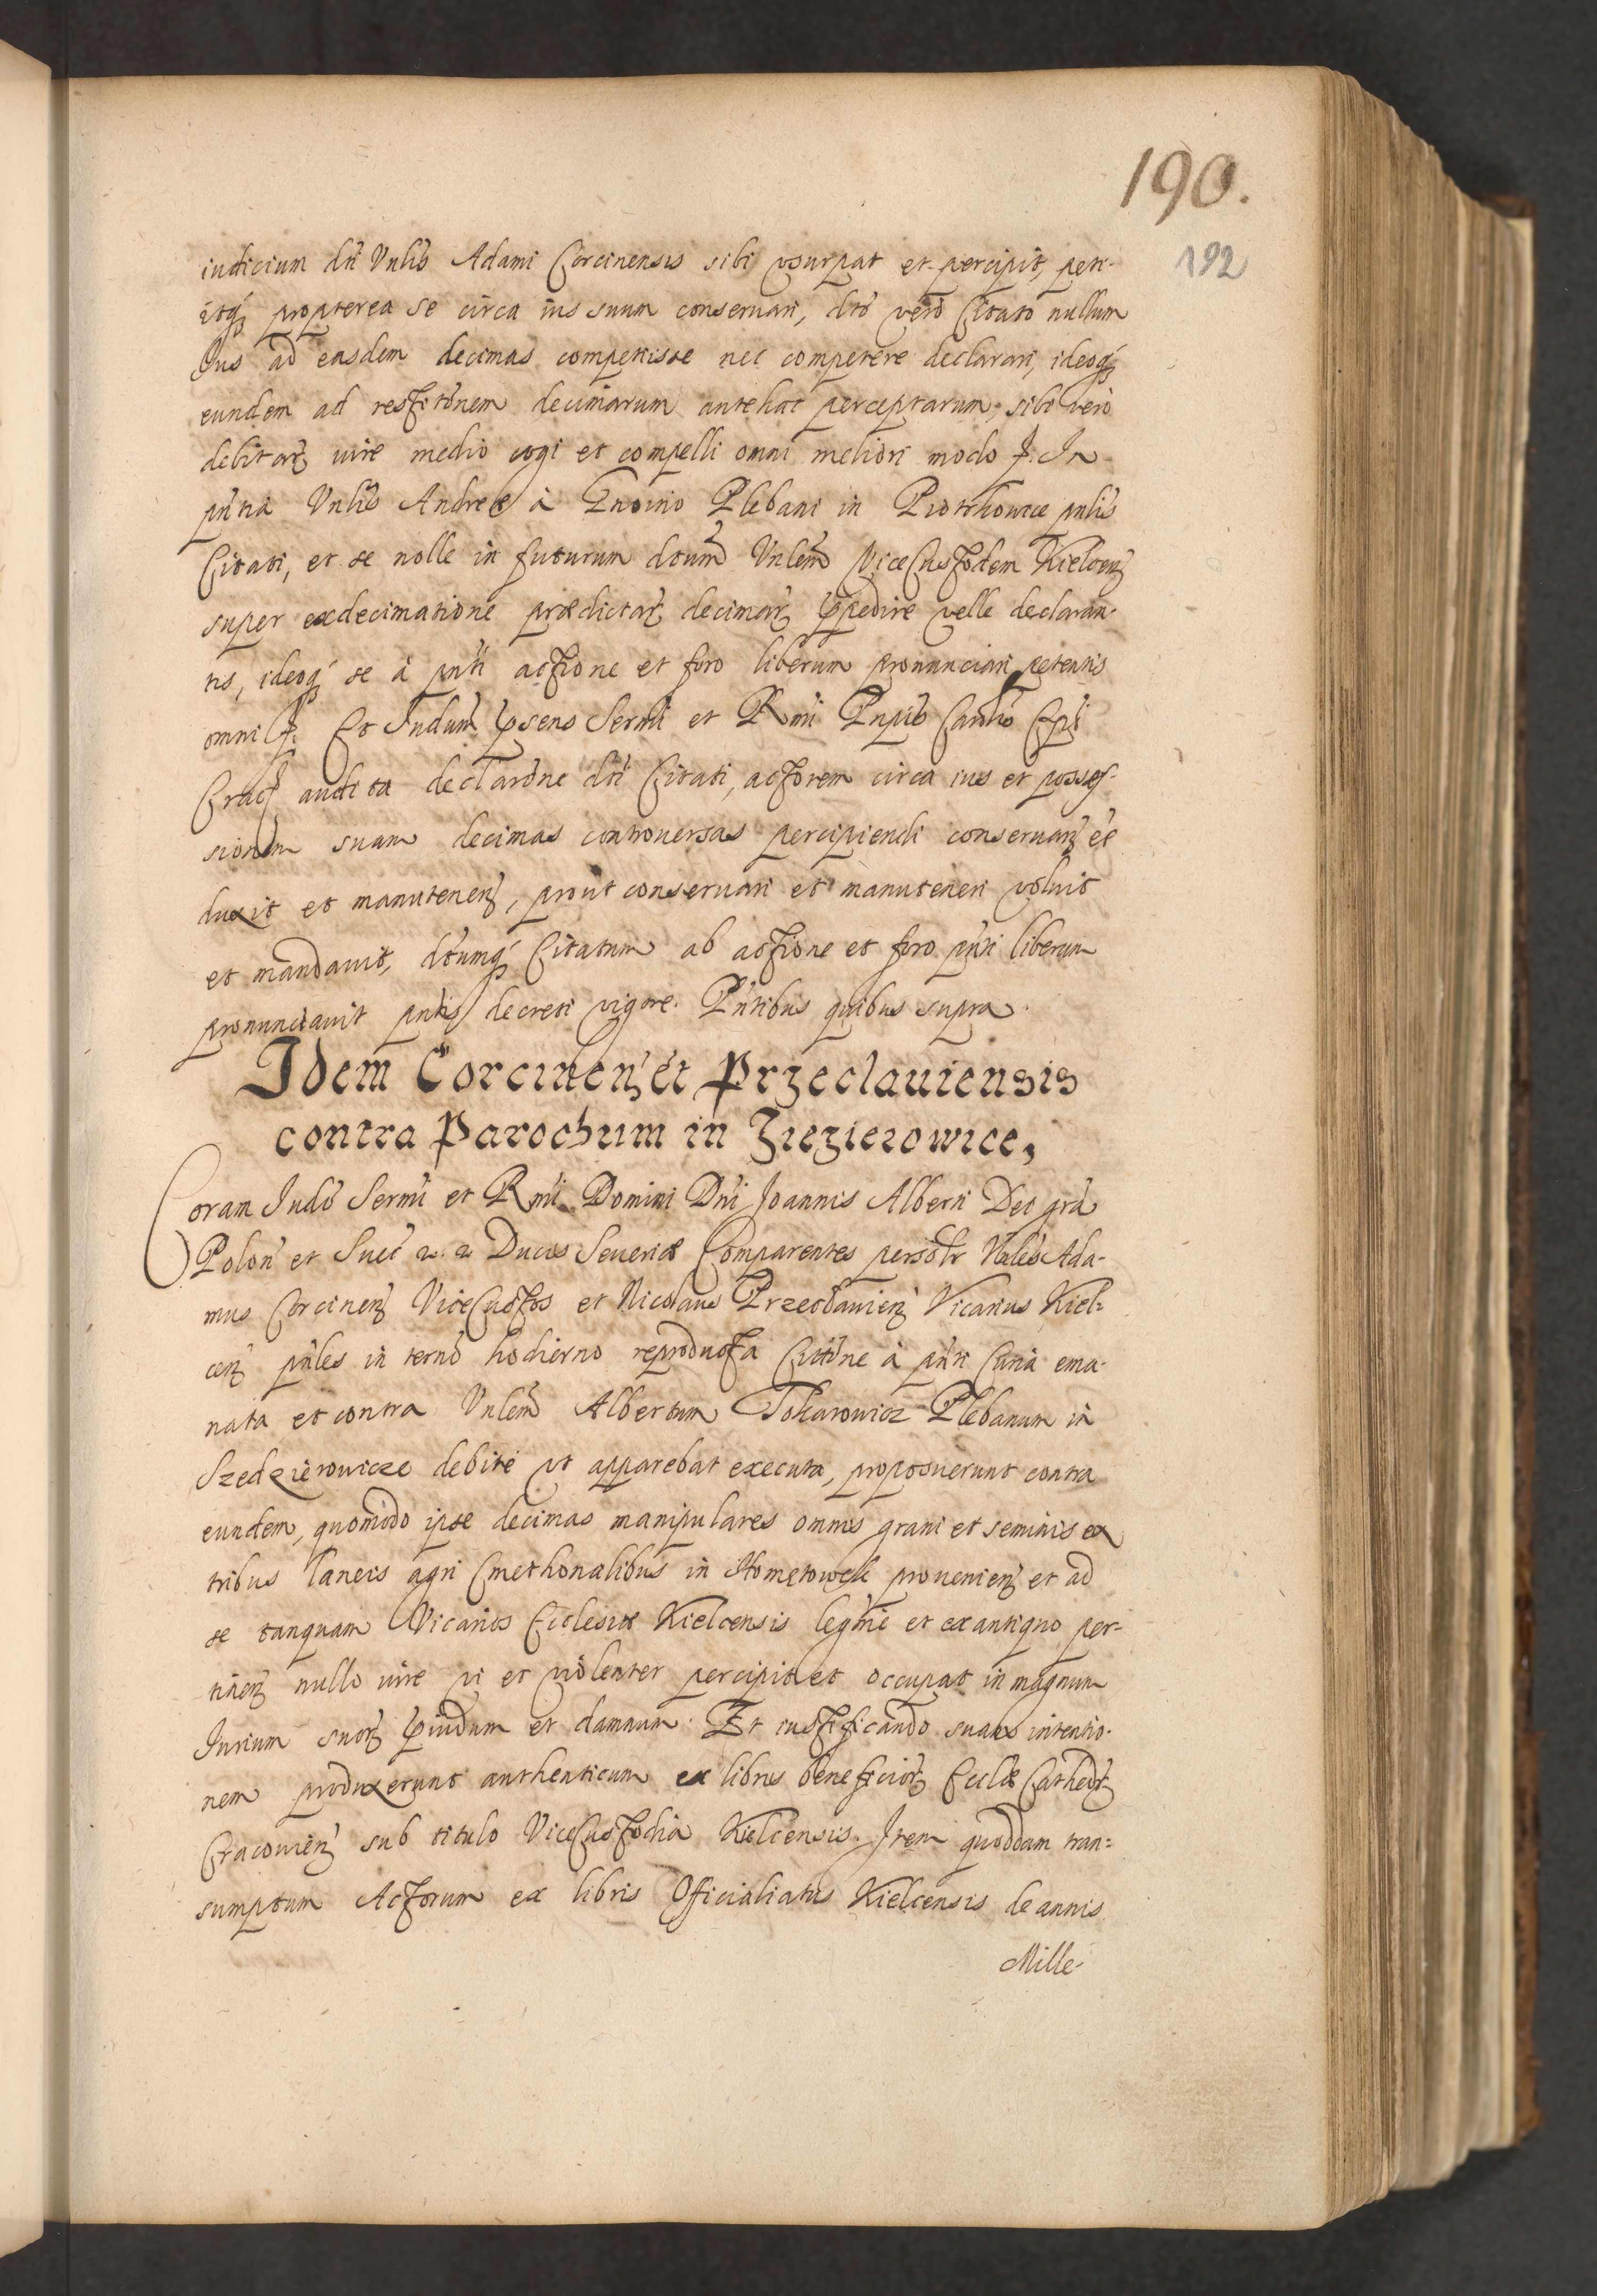 190.
192
iudicium dti Vnlis Adami Corcinensis sibi vsurpat et percipit, peti-
itq́ʒ propterea se circa ius suum conseruari, dto verò Citato nullum
Ius ad easdem decimas competisse nec competere declarari, ideoq́ʒ
eundem ad restitonem decimarum antehac perceptarum, sibi verò
debitarʒ iure medio cogi et compelli omni meliori modo ꝑ. In
pntia Vnlis Andreæ à Plebani in Piotrkowice pnlis
Citati, et se nolle in futurum dtum Vnlem ViceCustodem Kielcenʒ
super exdecimatione prædictarʒ decimarʒ ꝑpedire velle declaran-
tis, ideoq́ʒ se à pnti actione et foro liberum pronunciari petentis
omni ꝑ. Et Iudum ꝑsens Sermi et Rmi Pnpis Epi
Cracʒ audita declarone dti Citati, actorem circa ius et posses-
sionem suam decimas controuersas percipiendi conseruanʒ ee
duxit et manutenenʒ, prout conseruari et manuteneri voluit
et mandauit, dtumq́ʒ Citatum ab actione et foro pnti liberum
pronunciauit pntis decreti vigore. Pntibus quibus supra.
Idem Corcinenʒ et Przeclauiensis
contra Parochum in Ziezierowice,
Coram Iudo Sermi et Rmi Domini Dni Joannis Alberti Dei gra
Polon et Suec 2. 2 Ducis Seueriæ Comparentes persolr Vnles Ada-
mus Corcinenʒ ViceCustos et Nicolaus Przeclauienʒ Vicarius Kiel-
cenʒ pnles in termo hodierno reproducta Cittone à pnti Curia ema-
nata et contra Vnlem Albertum Tokarowicz Plebanum in
Szedzierowicze debitè vt apparebat executa, proposuerunt contra
eundem, quomodo ipse decimas manipulares omnis grani et seminis ex
tribus laneis agri Cmethonalibus in prouenienʒ et ad
se tanquam Vicarios Ecclesiæ Kielcensis legme et ex antiquo per-
tinenʒ nullo iure vi et violenter percipit et occupat in magnum
Iurium suorʒ ꝑiudum et damnum. Et iustificando suam intentio-
nem produxerunt authenticum ex libris beneficiorʒ Eccliæ Cathedrʒ
Cracouienʒ sub titulo ViceCustodia Kielcensis. Item quoddam tran-
sumptum Actorum ex libris Officialiatus Kielcensis de annis
Mille